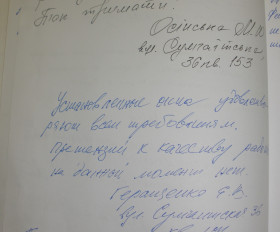 Так тримати!
Осінська М.
вул. Сумгаїтська
36 кв. 153
Установленные окна удовлетво-
ряют всем требованиям.
Претензий к качеству
на данный момент нет.
Геращенко
вул. Сумгаитская 36